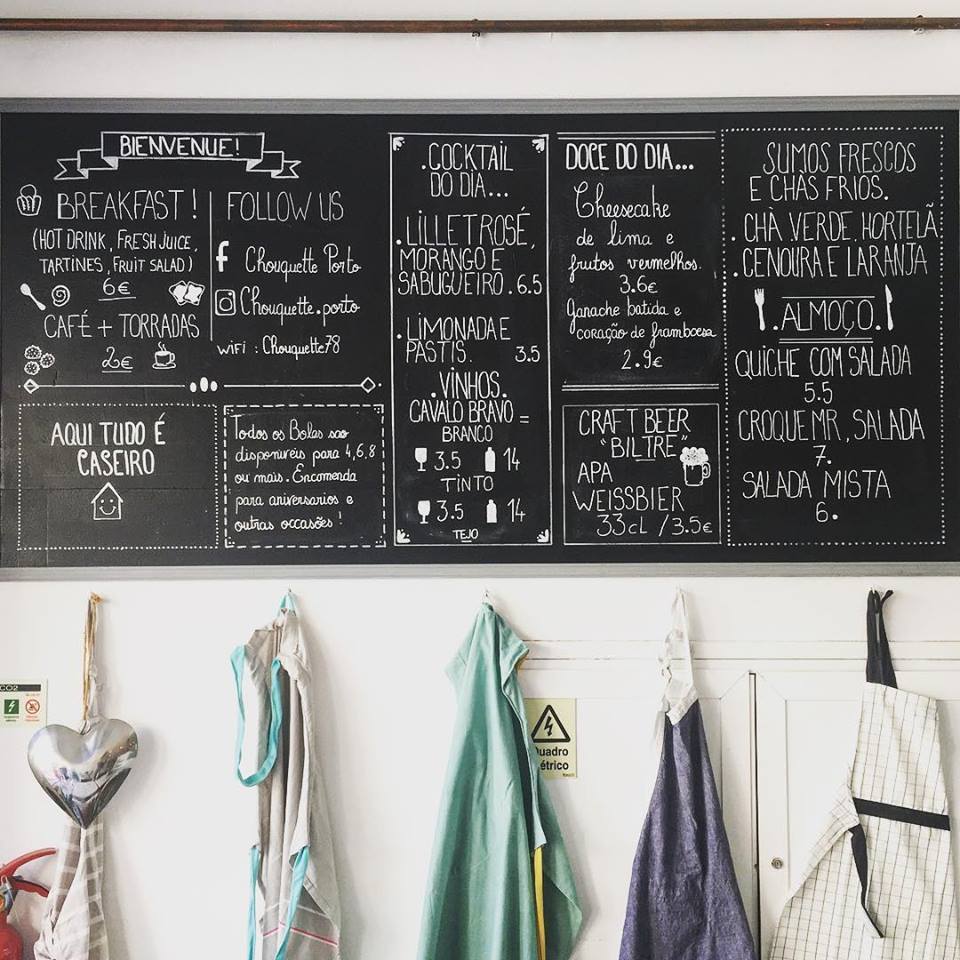 BIENVENUE!
BREAKFAST!
(HOT DRINK, FRESH JUICE,
TARTINES, FRUIT SALAD)
6€
CAFÉ + TORRADAS
2€
FOLLOW US
f Chouquette Porto
Chouquette.porto
WiFi : Chouquette78
AQUI TUDO É
CASEIRO
Todos os Bolas sao
disponiveis para 4,6,8
ou mais. Encomenda
para aniversarios e
outras occasões!
.COCKTAIL
DO DIA...
.LILLET ROSÉ,
MORANGO E
SABUGUEIRO. 6.5
.LIMONADA E
PASTIS. 3.5
.VINHOS.
CAVALO BRAVO =
BRANCO
3.5 14
TINTO
3.5 14
TEJO
DOCE DO DIA...
Cheesecake
de lima e
frutos vermelhos.
3.6€
Ganache batida e
coração de framboesa
2.9€
CRAFT BEER
"BILTRE"
APA
WEISSBIER
33CL /3.5€
SUMOS FRESCOS
E CHAS FRIOS.
. CHÀ VERDE, HORTELÃ
. CENOURA E LARANJA
.ALMOÇO.
QUICHE COM SALADA
5.5
CROQUE MR, SALADA
7.
SALADA MISTA
6.
CO2
Quadro
étrico